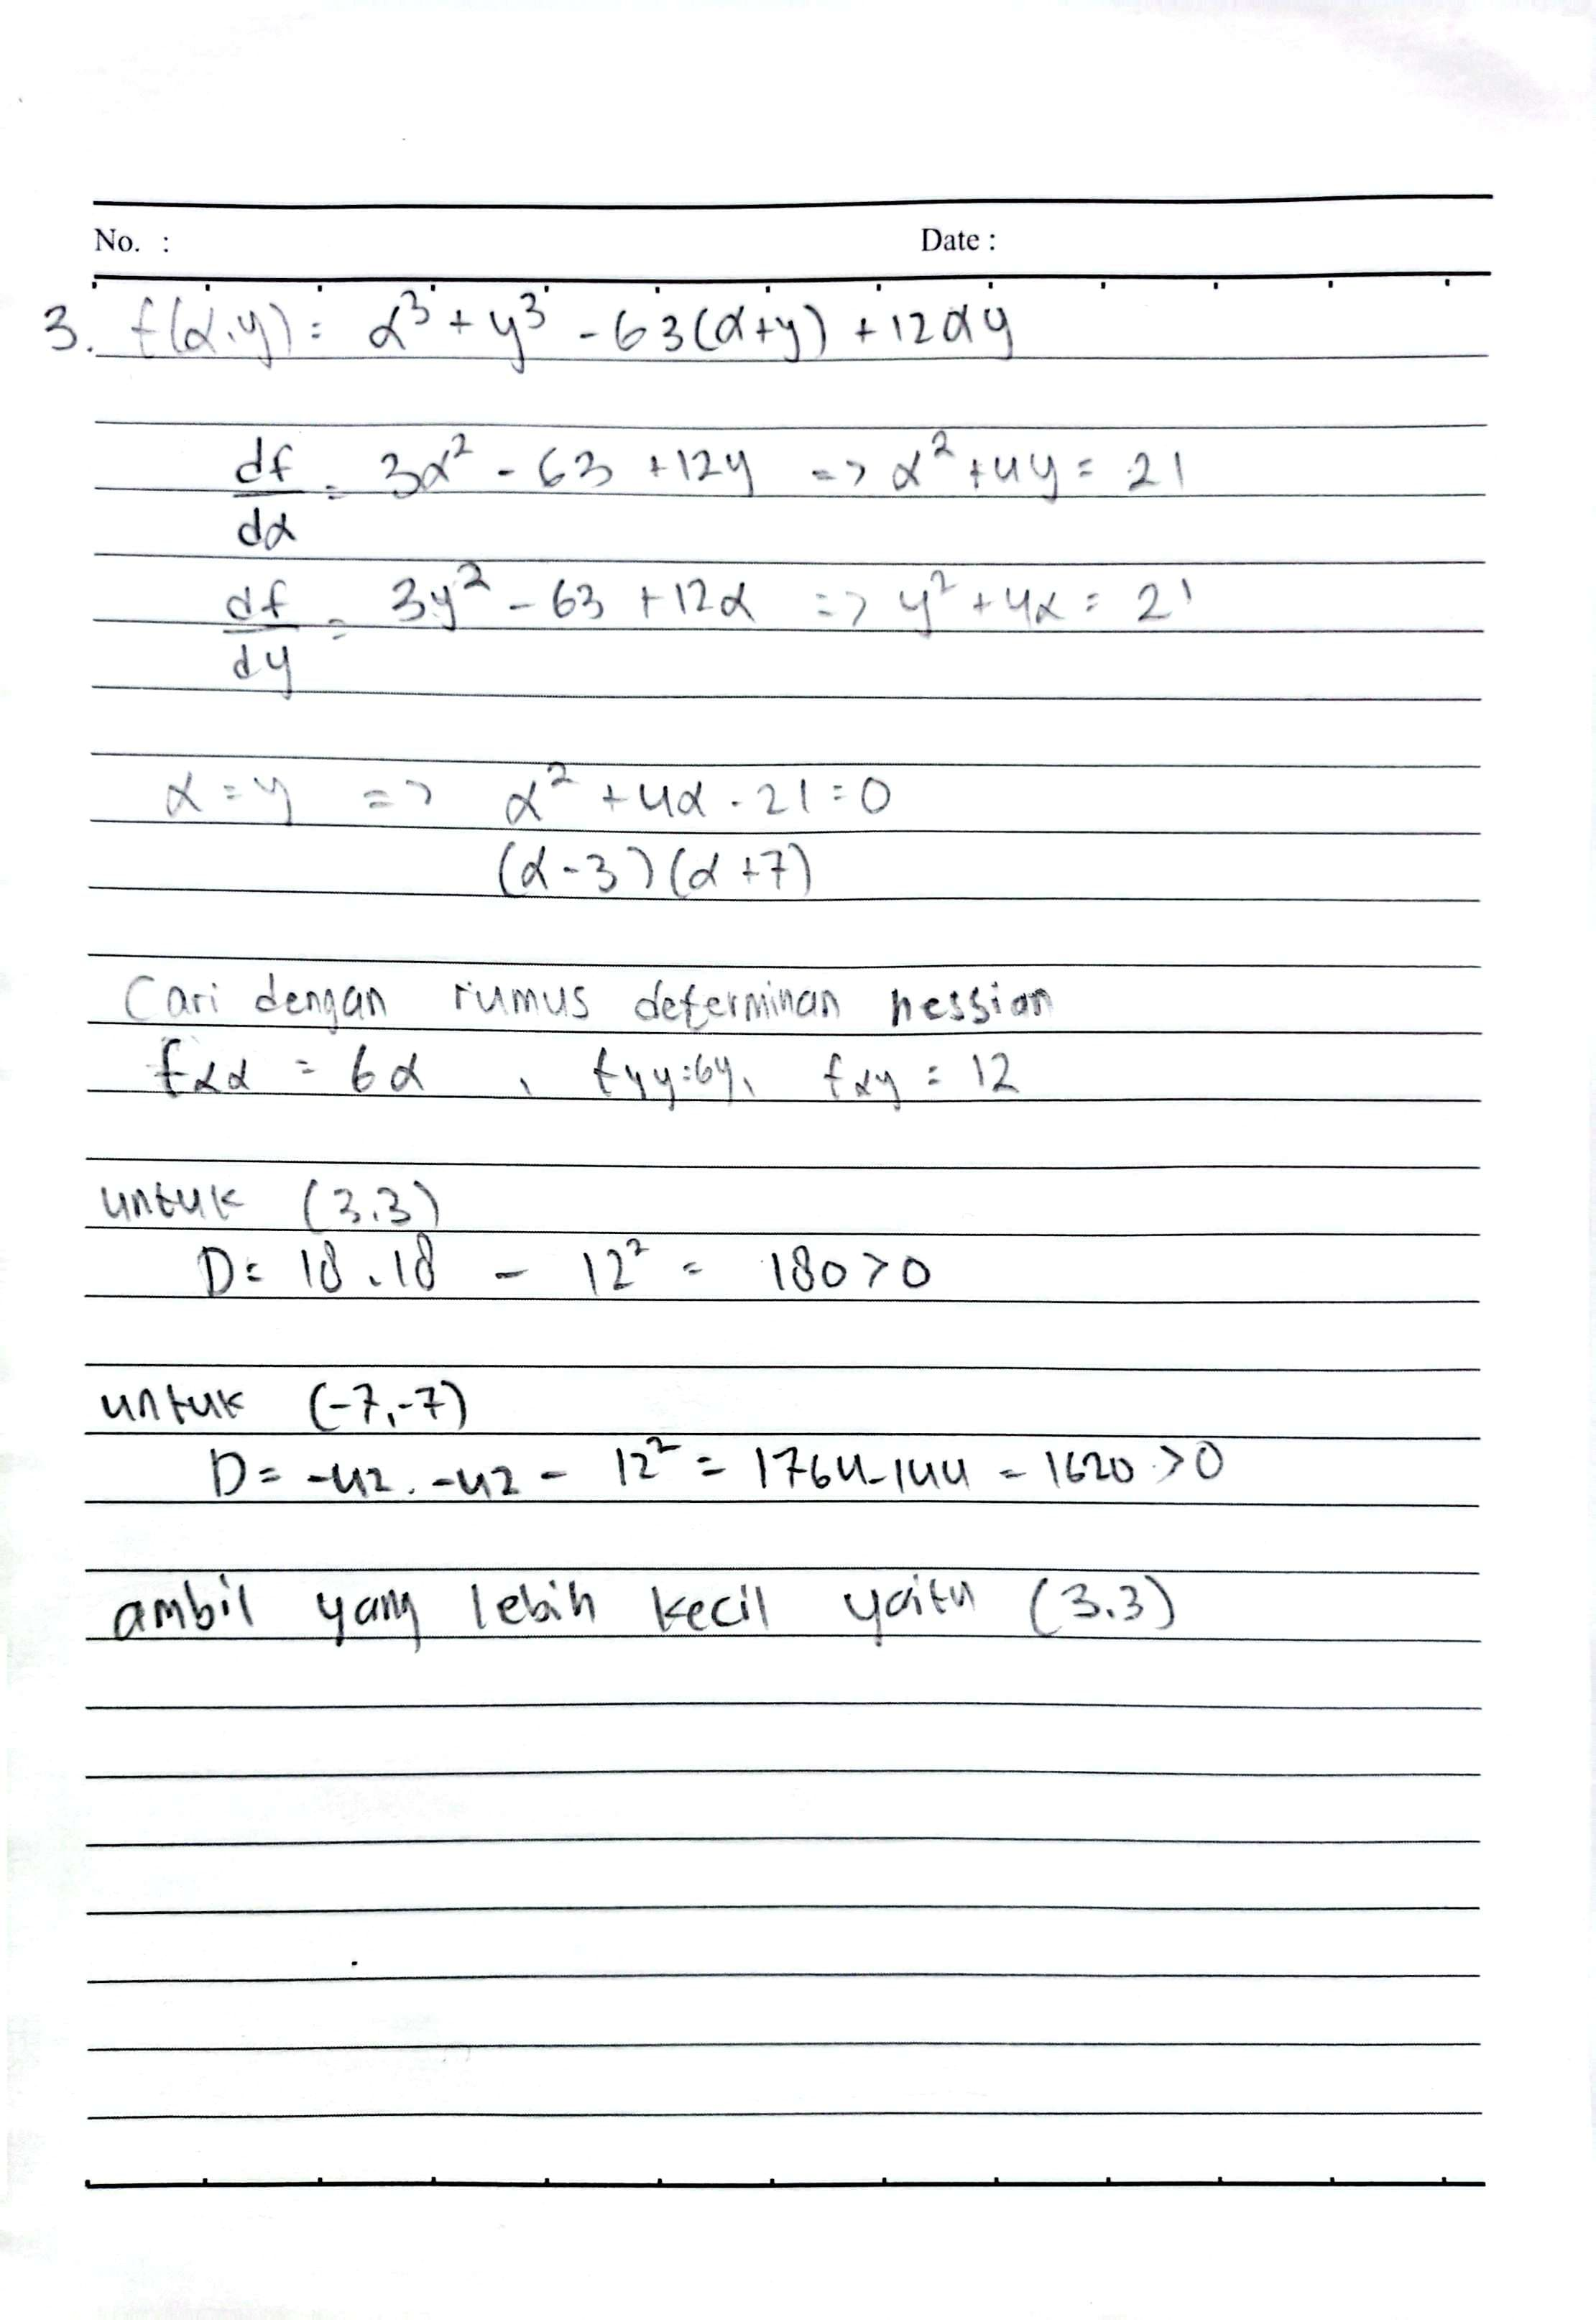 No. :
Date :
3. f(x,y) = x³ + y³ - 63(x+y) + 12xy
df/dx = 3x² - 63 + 12y => x² + 4y = 21
df/dy = 3y² - 63 + 12x => y² + 4x = 21
x = y => x² + 4x - 21 = 0
(x - 3) (x + 7)
Cari dengan rumus determinan hessian
fxx = 6x , fyy = 6y, fxy = 12
untuk (3,3)
D = 18 . 18 - 12² = 180 > 0
untuk (-7,-7)
D = -42 . -42 - 12² = 1764 - 144 = 1620 > 0
ambil yang lebih kecil yaitu (3,3)